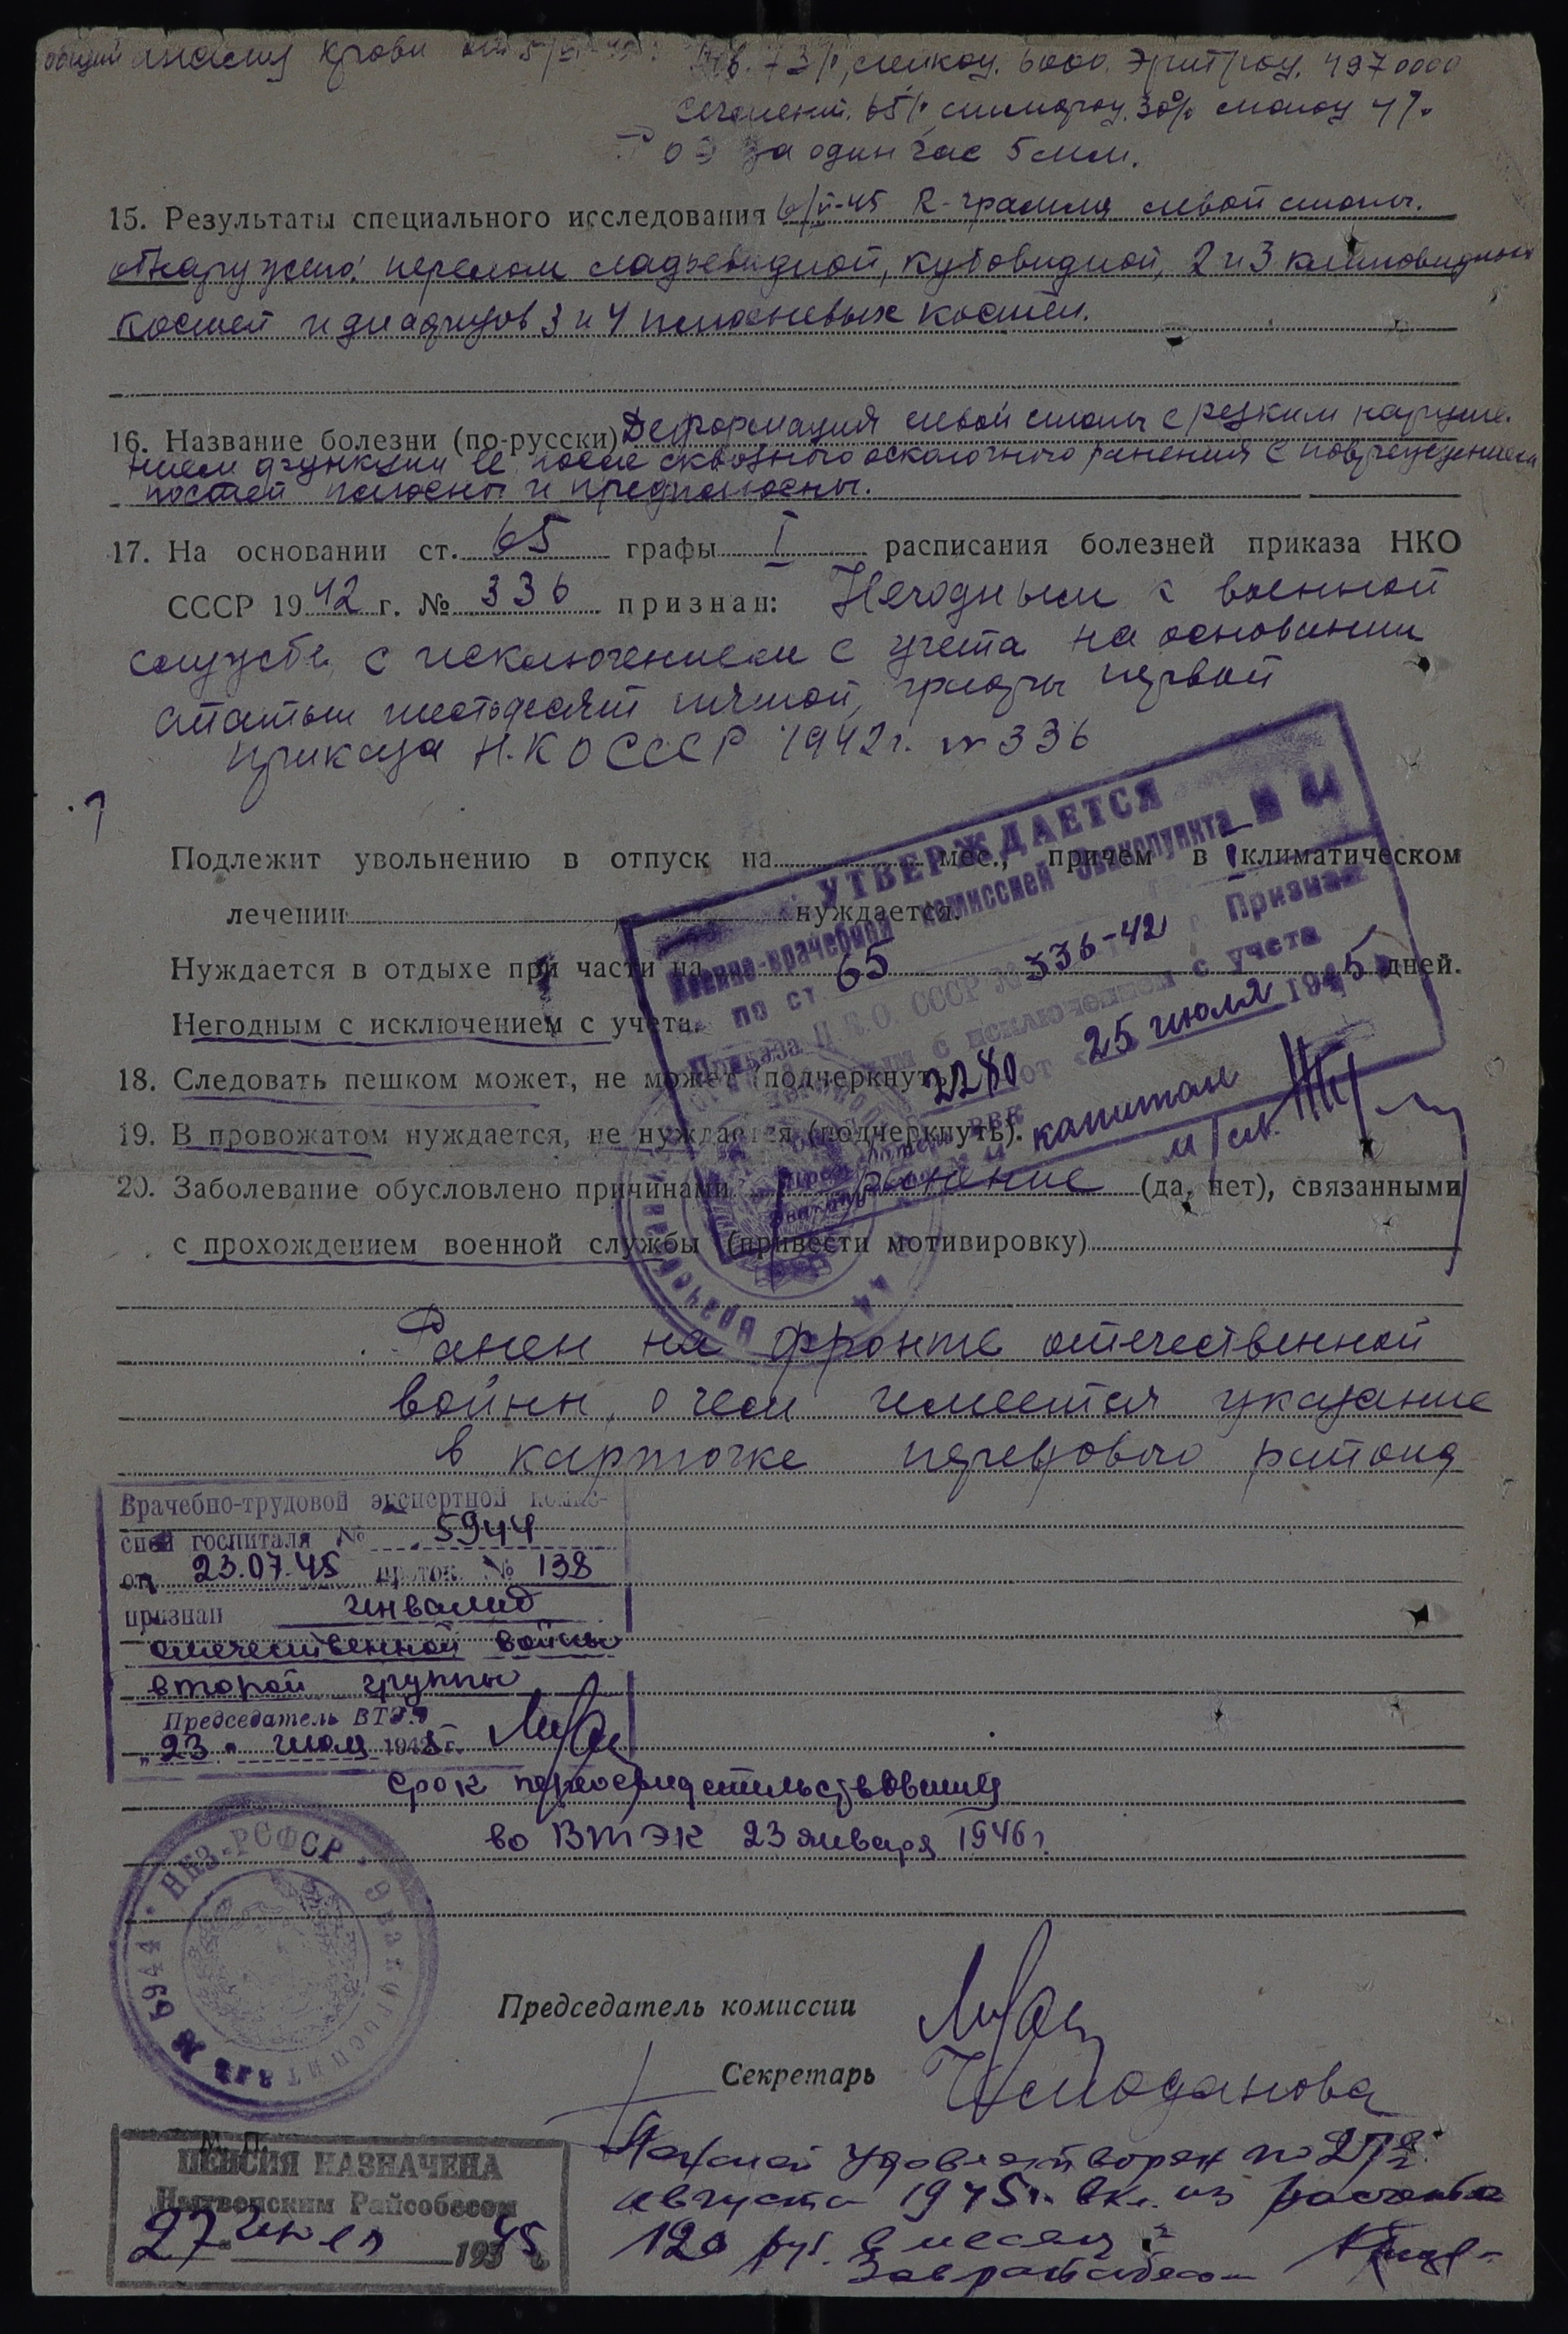 общий анализ крови от 5/VI-45г. Нв. 73%, лейкоц. 6000. Эритроц. 4970000
Сегмент. 65%, лимфоц. 30% моноц 4%
РОЭ за один час 5 мм.
15. Результаты специального исследования 6/VI-45 R-грамма левой стопы.
обнаружено: перелом ладьевидной, кубовидной, 2 и 3 клиновидных
костей и диафизов 3 и 4 плюсневых костей.
16. Название болезни (по-русски) Деформация левой стопы с резким наруше-
нием функции ее после сквозного осколочного ранения с повреждением
костей плюсны и предплюсны.
17. На основании ст. 65 графы I расписания болезней приказа НКО
СССР 1942 г. № 336 признан: Негодным к военной
службе с исключением с учета на основании
статьи шестьдесят пятой, графы первой
приказа Н.К О СССР 1942г. № 336
УТВЕРЖДАЕТСЯ
Военно-врачебной комиссией Эвакопункта № 44
по ст. 65
Приказа Н.К.О. СССР № 336-42 г. Признан
негодным с исключением с учета
2280 от 25 июля 1945
капитан м/сл.
Подлежит увольнению в отпуск на мес., причем в климатическом
лечении нуждается.
Нуждается в отдыхе при части на дней.
Негодным с исключением с учета.
18. Следовать пешком может, не может (подчеркнуть)
19. В провожатом нуждается, не нуждается (подчеркнуть).
20. Заболевание обусловлено причинами ранение (да, нет), связанными
с прохождением военной службы (привести мотивировку)
Ранен на фронте отечественной
войны, о чем имеется указание
в карточке передового района
Врачебно-трудовой экспертной комис-
сией госпиталя № 5944
от 23.07.45 проток. № 138
признан инвалид
отечественной войны
второй группы
Председатель ВТЭК
„23" июля 1945 г.
срок переосвидетельствования
во ВТЭК 23 января 1946 г.
НКЗ-РСФСР • Эвакогоспиталь № 5944
Председатель комиссии
Секретарь
М. П.
ПЕНСИЯ НАЗНАЧЕНА
Нытвенским Райсобесом
27 июля 1945
Пенсией удовлетворен по 27го
августа 1945 г. вкл. из расчета
120 руб. в месяц
Зав райсобесом